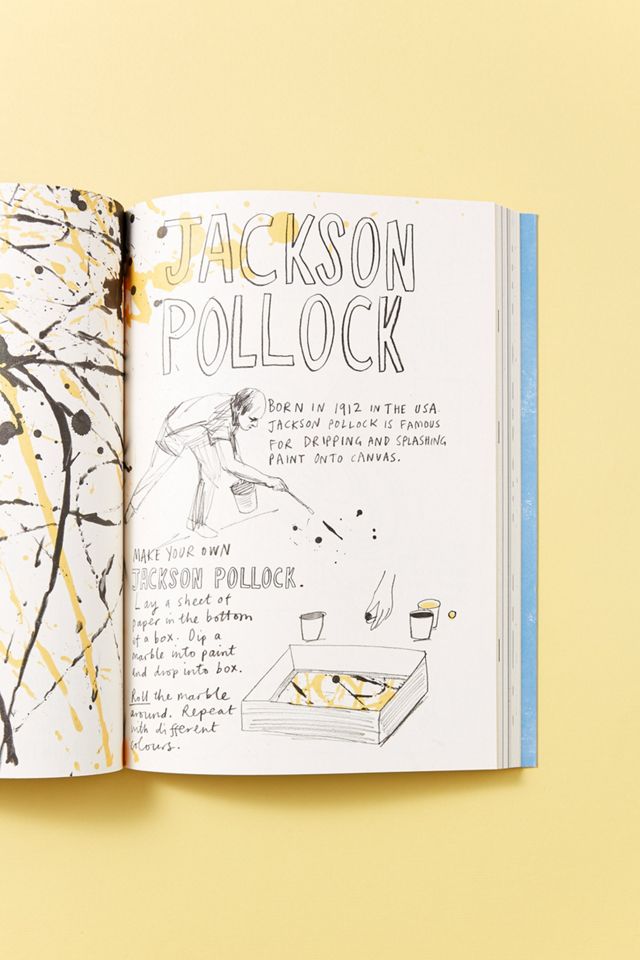 JACKSON
POLLOCK
BORN IN 1912 IN THE USA.
JACKSON POLLOCK IS FAMOUS
FOR DRIPPING AND SPLASHING
PAINT ONTO CANVAS.
MAKE YOUR OWN
JACKSON POLLOCK.
Lay a sheet of
paper in the bottom
of a box. Dip a
marble into paint
and drop into box.
Roll the marble
around. Repeat
with different
colours.